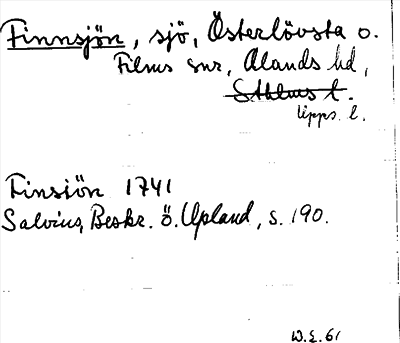 Finnsjön, sjö, Österlövsta o.
Films snr, Olands hd,
Sthlms l.
Upps. l.
Finsiön 1741
Salvius, Beskr. ö. Upland, s. 190.
W.E. 61